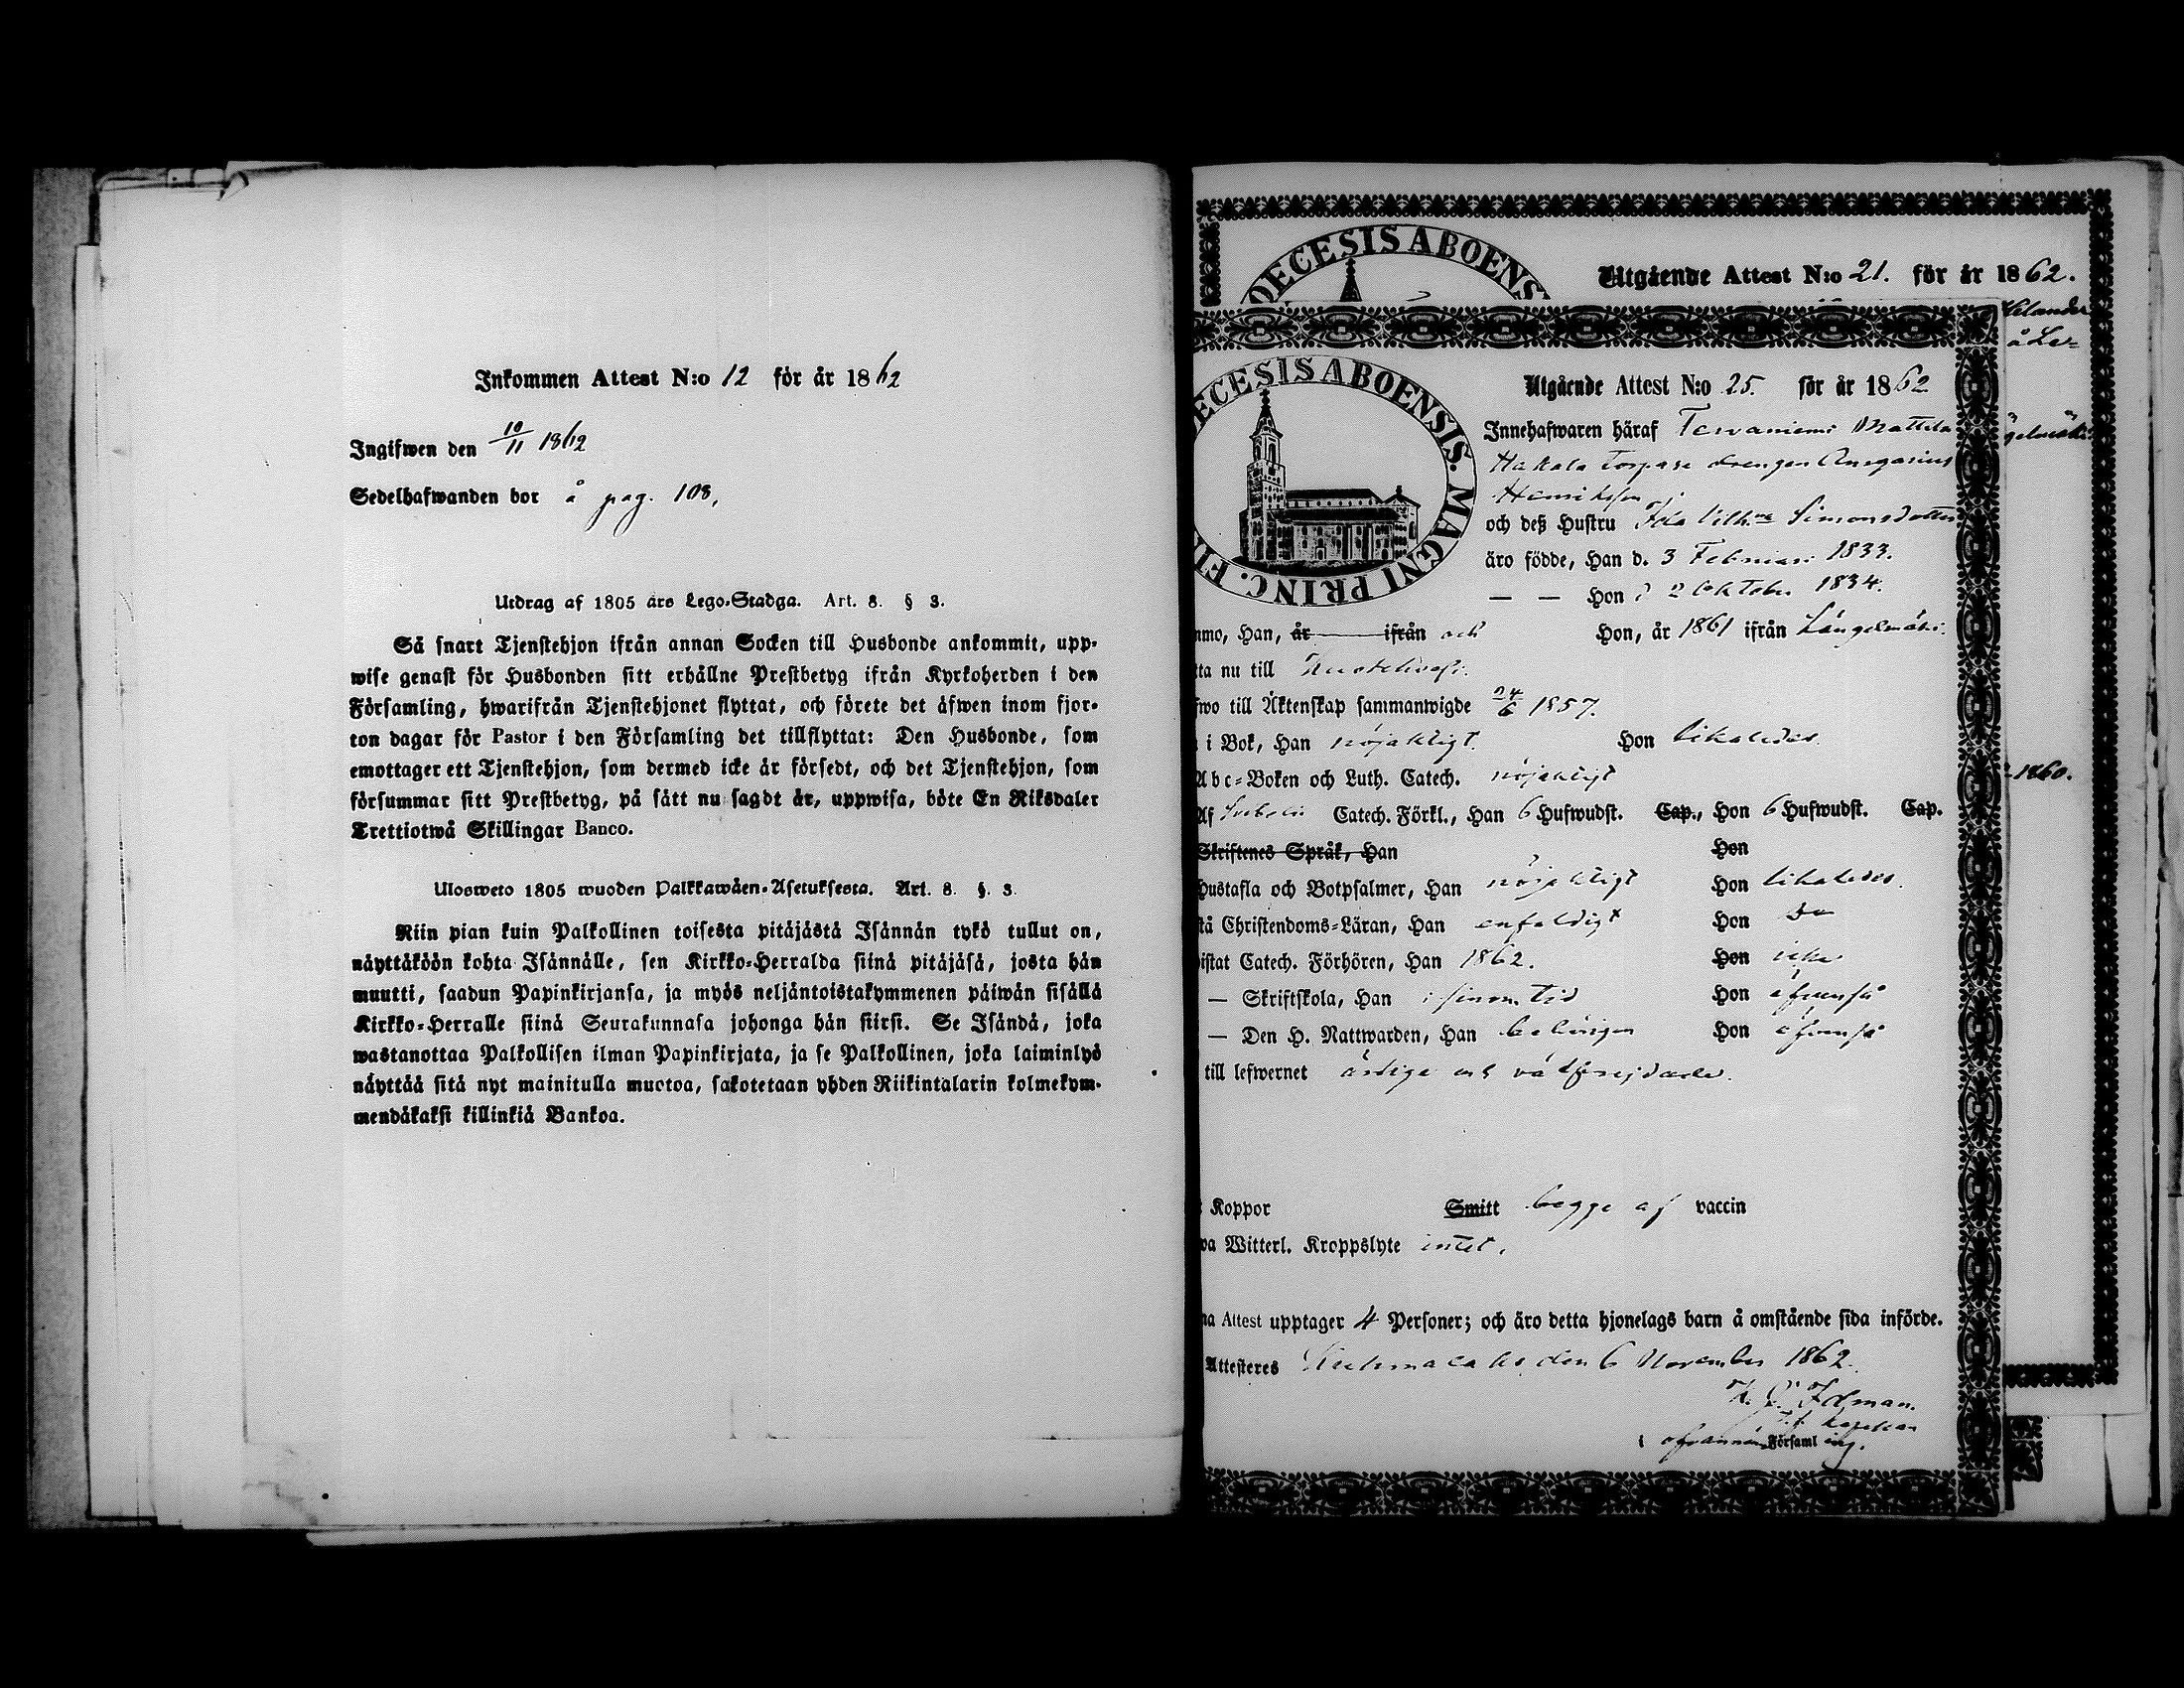 Inkommen Attest N:o 12 för år 1862
Ingifwen den 10/11 1862
Sedelhafwanden bor å pag. 108,
Utdrag af 1805 års Lego-Stadga. Art. 8. § 3.
Så snart Tjenstehjon ifrån annan Socken till Husbonde ankommit, upp-
wise genast för Husbonden sitt erhållne Prestbetyg ifrån Kyrkoherden i den
Församling, hwarifrån Tjenstehjonet flyttat, och förete det äfwen inom fjor-
ton dagar för Pastor i den Församling det tillflyttat: Den Husbonde, som
emottager ett Tjenstehjon, som dermed icke är försedt, och det Tjenstehjon, som
försummar sitt Prestbetyg, på sätt nu sagdt är, uppwisa, böte En Riksdaler
Trettiotwå Skillingar Banco.
Ulosweto 1805 wuoden Palkkawäen-Asetuksesta. Art. 8. §. 3.
Niin pian kuin Palkollinen toisesta pitäjästä Isännän tykö tullut on,
näyttäköön kohta Isännälle, sen Kirkko-Herralda siinä pitäjäsä, josta hän
muutti, saadun Papinkirjansa, ja myös neljäntoistakymmenen päiwän sisällä
Kirkko-Herralle siinä Seurakunnasa johonga hän siirsi. Se Isändä, joka
wastanottaa Palkollisen ilman Papinkirjata, ja se Palkollinen, joka laiminlyö
näyttää sitä nyt mainitulla muotoa, sakotetaan yhden Riikintalarin kolmekym-
mendäkaksi killinkiä Bankoa.
DECESIS ABOENS
Utgående Attest N:o 21. för år 1862.
elander
å La=
gelmäki
1860.
ECESIS ABOENSIS. MAGNI PRINC. FI
Utgående Attest N:o 25. för år 1862
Innehafwaren häraf Tervaniemi Mattila
Hakala torpare drengen Ansgarius
Henriksson
och deß Hustru Ida Vilh:na Simonsdotter
äro födde, Han d. 3 Februari 1833.
— — Hon d 2 Oktober 1834.
mmo, Han, år ifrån och Hon, år 1861 ifrån Längelmäki.
tta nu till
fwo till Äktenskap sammanwigde 24/6 1857.
i Bok, Han nöjaktigt. Hon likaledes.
Abc-Boken och Luth. Catech. nöjaktigt
Af Catech. Förkl., Han 6 Hufwudst. Cap., Hon 6 Hufwudst. Cap.
Skriftenes Språk, Han Hon
Hustafla och Botpsalmer, Han nöjaktigt Hon likaledes.
tå Christendoms-Läran, Han enfaldigt Hon Do
istat Catech. Förhören, Han 1862. Hon icke
— Skriftskola, Han i sinom tid Hon äfvenså
— Den H. Nattwarden, Han behörigen Hon äfvenså
till lefwernet ärlige och välfrejdade.
Koppor Smitt begge af vaccin
wa Witterl. Kroppslyte intet.
na Attest upptager 4 Personer; och äro detta hjonelags barn å omstående sida införde.
Attesteres Kuhmalaks den 6 November 1862.
K. G. Idman.
T.f. Kapellan
i ofvannämnd Församling.